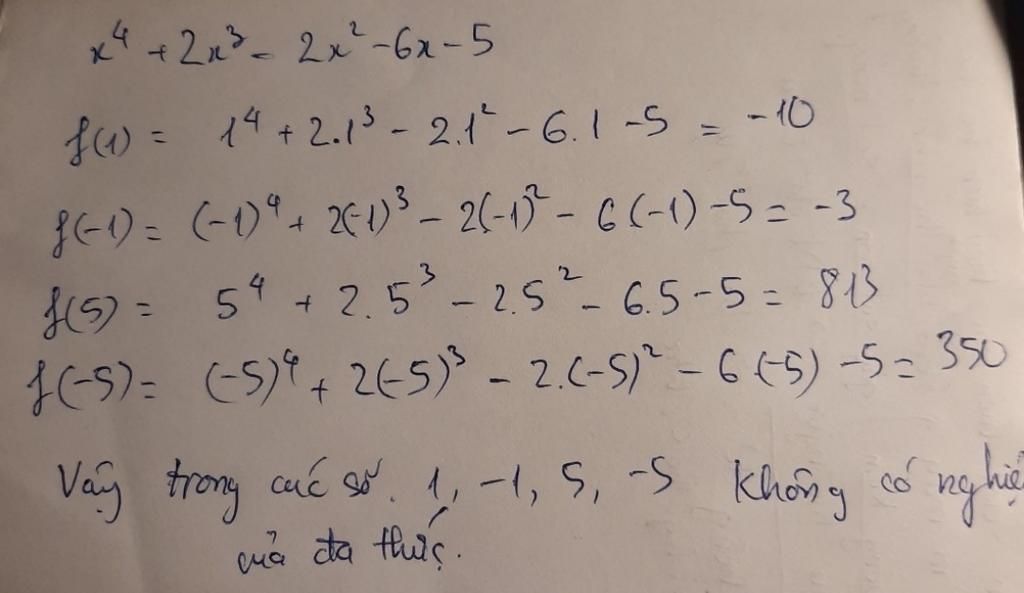 x⁴ + 2x³ - 2x² - 6x - 5
f(1) = 1⁴ + 2.1³ - 2.1² - 6.1 - 5 = -10
f(-1) = (-1)⁴ + 2(-1)³ - 2(-1)² - 6(-1) - 5 = -3
f(5) = 5⁴ + 2.5³ - 2.5² - 6.5 - 5 =
f(-5) = (-5)⁴ + 2(-5)³ - 2.(-5)² - 6(-5) - 5 = 350
Vậy trong các số. 1, -1, 5, -5 không có nghiệ
của đa thức.